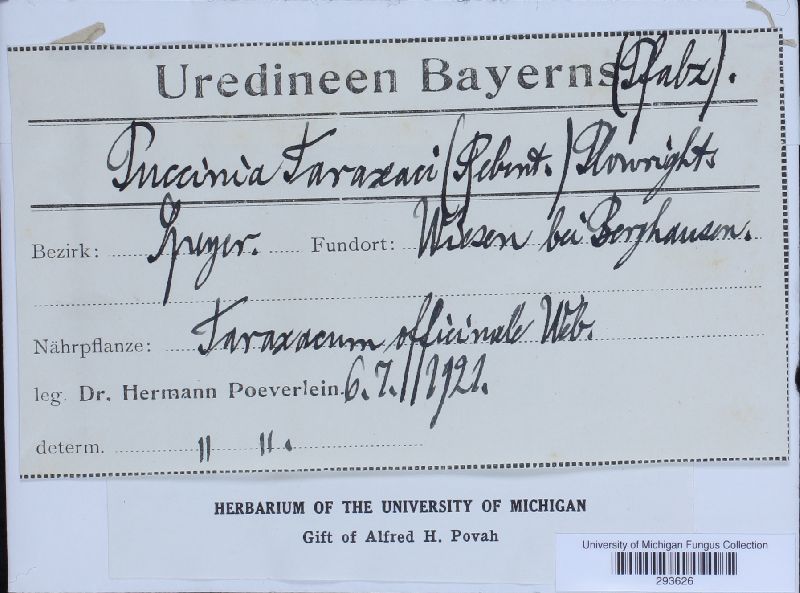 Uredineen Bayerns (Pfalz).
Puccinia Taraxaci (Rebent.) Plowright
Bezirk: Speyer. Fundort: Wiesen bei Berghausen.
Nährpflanze: Taraxacum officinale Web.
leg. Dr. Hermann Poeverlein. 6. 7. 1921.
determ. " ".
HERBARIUM OF THE UNIVERSITY OF MICHIGAN
Gift of Alfred H. Povah
University of Michigan Fungus Collection
293626